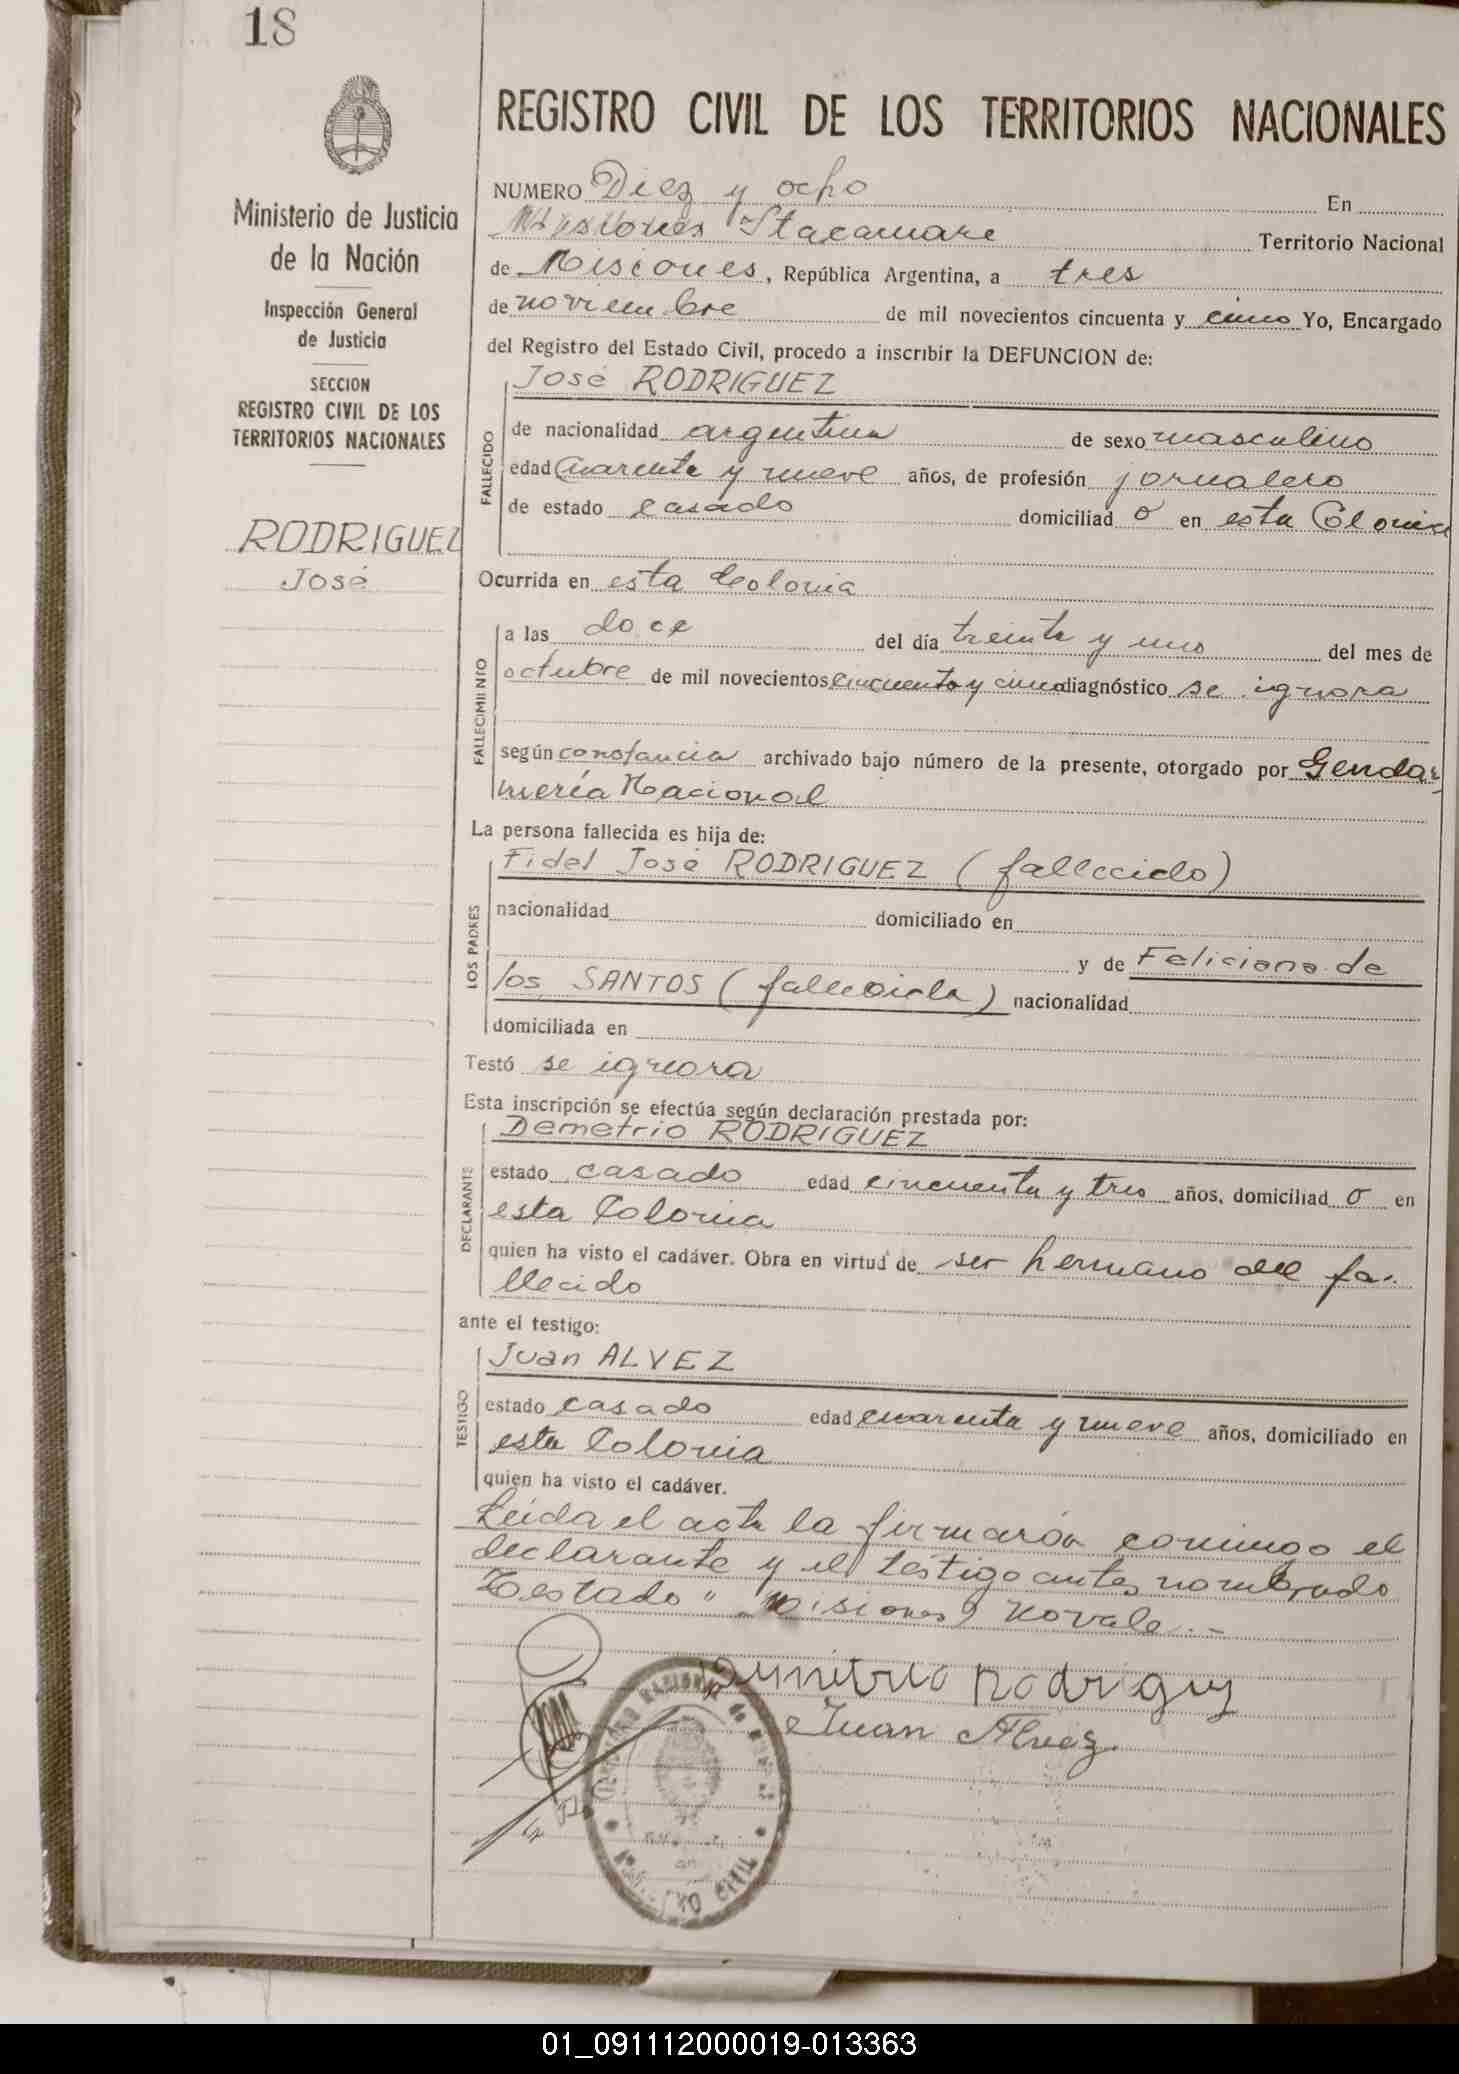 18
Ministerio de Justicia
de la Nación
Inspección General
de Justicia
SECCION
REGISTRO CIVIL DE LOS
TERRITORIOS NACIONALES
RODRIGUEZ
José
REGISTRO CIVIL DE LOS TERRITORIOS NACIONALES
NUMERO Diez y ocho En
Misiones Itacaruare Territorio Nacional
de Misiones, República Argentina, a tres
de noviembre de mil novecientos cincuenta y cinco Yo, Encargado
del Registro del Estado Civil, procedo a inscribir la DEFUNCION de:
José RODRIGUEZ
FALLECIDO
de nacionalidad argentina de sexo masculino
edad Cuarenta y nueve años, de profesión jornalero
de estado casado domiciliad o en esta Colonia
Ocurrida en esta Colonia
FALLECIMIENTO
a las doce del día treinta y uno del mes de
octubre de mil novecientos cincuenta y cinco diagnóstico se ignora
según constancia archivado bajo número de la presente, otorgado por Gendar
mería Nacional
La persona fallecida es hija de:
LOS PADRES
Fidel José RODRIGUEZ (fallecido)
nacionalidad domiciliado en
y de Feliciana de
los SANTOS (fallecida) nacionalidad
domiciliada en
Testó se ignora
Esta inscripción se efectúa según declaración prestada por:
DECLARANTE
Demetrio RODRIGUEZ
estado casado edad cincuenta y tres años, domiciliad o en
esta Colonia
quien ha visto el cadáver. Obra en virtud de ser hermano del fa-
llecido
ante el testigo:
TESTIGO
Juan ALVEZ
estado casado edad cuarenta y nueve años, domiciliado en
esta Colonia
quien ha visto el cadáver.
Leída el acta la firmarón conmigo el
declarante y el testigo antes nombrado
Testado " Misiones) No vale.-
Dimitrio Rodriguez
Juan Alvez.
CIVIL
01_091112000019-013363